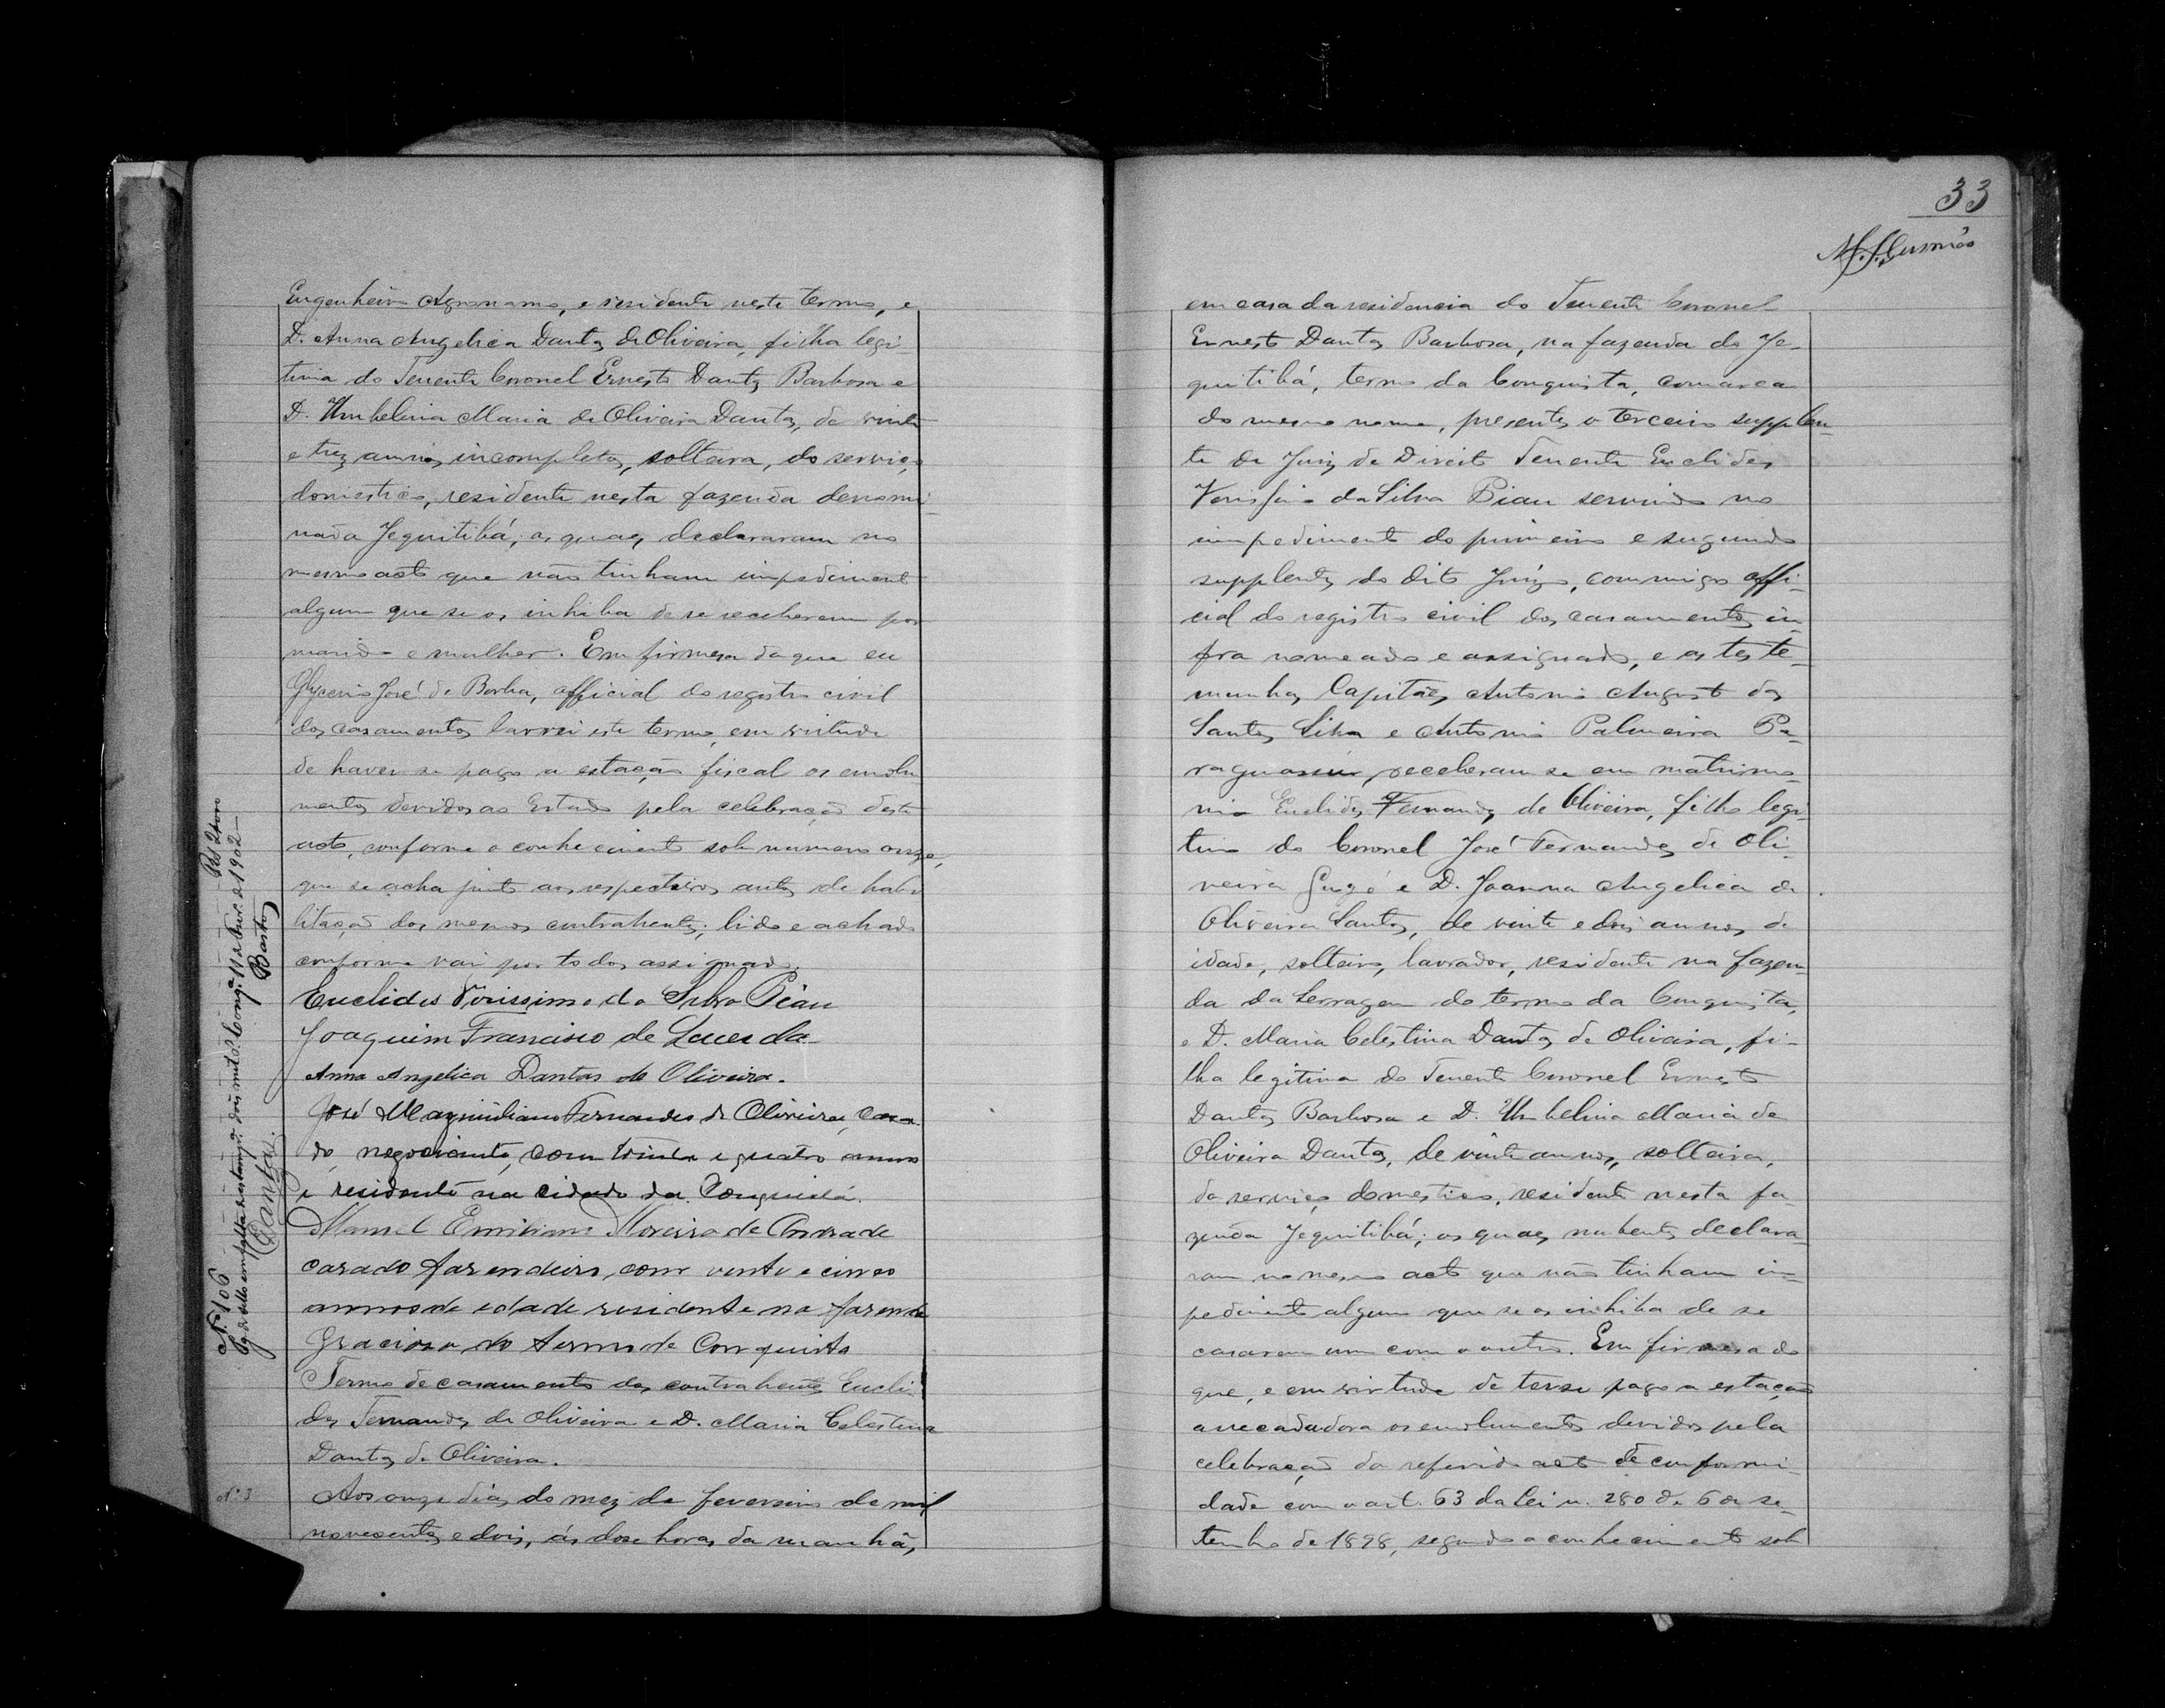 Engenheiro Agronomo, e residente neste termo, e
D. Anna Angelica Dantas de Oliveira, filha legi-
tima do Tenente Coronel Ernesto Dantas Barbosa e
D. Umbelina Maria de Oliveira Dantas, de vinte
e trez annos incompletos, solteira, do serviço
domestico, residente nesta fazenda denomi-
nada Jequitibá; os quaes declararam no
mesmo acto que não tinham impedimento
algum que se os inhiba de se receberem por
marido e mulher. Em firmesa do que eu
Glycerio José de Borba, official do registro civil
dos casamentos lavrei este termo em virtude
de haver se pago a estação fiscal os emolu
mentos devidos ao Estado pela celebração deste
acto, conforme o conhecimento sob numero onze,
que se acha junto aos respectivos autos de habi
litação dos mesmos contrahentes; lido e achado
conforme vai por todos assignado.
Euclides Virissimo da Silva Piau
Joaquim Francisco de Lacerda
Anna Angelica Dantas de Oliveira.
José Maximiliano Fernandes de Oliveira, casa
do, negociante, com trinta e quatro annos
e residente na cidade da Conquista.
Manoel Emiliano Moreira de Andrade
casado fazendeiro, com vinte e cinco
annos de edade residente na fazenda
Graciosa do termo de Conquista
Termo de casamento dos contrahentes Eucli-
des Fernandes de Oliveira e D. Maria Celestina
Dantas de Oliveira.
Nº 3
Aos onze dias do mez de fevereiro de mil
novecentos e dois, ás dose horas da manhã,
Nº 106 Rs 2#000
Pg de sello estampª dois mil Conqª 11 Fevº de 1902
Bastos
Dantas.
33
em casa da residencia do Tenente Coronel
Ernesto Dantas Barbosa, na fazenda do Je-
quitibá, termo da Conquista, comarca
do mesmo nome, presentes o terceiro supplen-
te do Juiz de Direito Tenente Euclides
Verissimo da Silva Piau servindo no
impedimento do primeiro e segundo
supplentes do dito Juizo, commigo offi-
cial do registro civil dos casamentos in-
fra nomeado e assignado, e as teste-
munhas Capitães Antonio Augusto dos
Santos Silva e Antonio Palmeira Pa-
raguassu, receberam se em matrimo-
nio Euclides Fernandes de Oliveira, filho legi-
timo do Coronel José Fernandes de Oli-
veira Gugé e D. Joanna Angelica de
Oliveira Santos, de vinte e dois annos de
idade, solteiro, lavrador, residente na fazen-
da da Serragem do termo da Conquista,
e D. Maria Celestina Dantas de Oliveira, fi-
lha legitima do Tenente Coronel Ernesto
Dantas Barbosa e D. Umbelina Maria de
Oliveira Dantas, de vinte annos, solteira,
do serviço domestico, residente nesta fa-
zenda Jequitibá; os quaes nubentes declara-
ram no mesmo acto que não tinham im-
pedimento algum que se os inhiba de se
casarem um com o outro. Em firmesa do
que, e em virtude de terse pago a estação
arrecadadora os emolumentos devidos pela
celebração do referido acto de conformi-
dade com o art. 63 da Lei n. 280 de 6 de se-
tembro de 1898, segundo o conhecimento sob